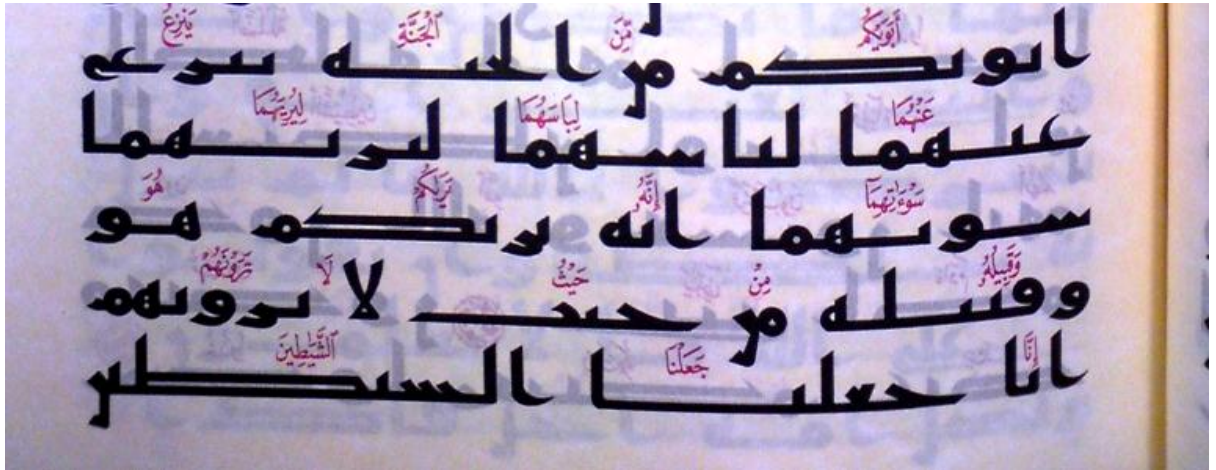 أَبَوَيْكُم مِّنَ ٱلْجَنَّةِ يَنزِعُ
ابويكم من الجنه ينزع
عَنْهُمَا لِبَاسَهُمَا لِيُرِيَهُمَا
عنهما لباسهما ليريهما
سَوْءَٰتِهِمَآ إِنَّهُۥ يَرَىٰكُمْ هُوَ
سوتهما انه يريكم هو
وَقَبِيلُهُۥ مِنْ حَيْثُ لَا تَرَوْنَهُمْ
وقبيله من حيث لا ترونهم
إِنَّا جَعَلْنَا ٱلشَّيَٰطِينَ
انا جعلنا الشيطين